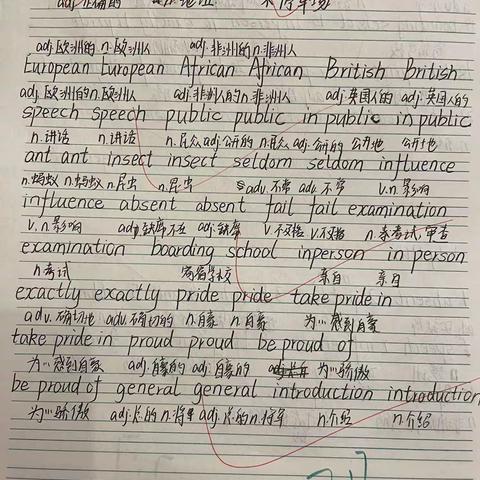 adj. 欧洲的 n. 欧洲人 adj. 非洲的 n. 非洲人
European European African African British British
adj. 欧洲的 n. 欧洲人 adj. 非洲人的 n. 非洲人 adj. 英国人的 adj. 英国人的
speech speech public public in public in public
n. 讲话 n. 讲话 n. 民众 adj. 公开的 n. 民众 adj. 公开的 公开地 公开地
ant ant insect insect seldom seldom influence
n. 蚂蚁 n. 蚂蚁 n. 昆虫 n. 昆虫 adv. 不常 adv. 不常 v.n. 影响
influence absent absent fail fail examination
v.n. 影响 adj. 缺席 adj. 缺席 v. 不及格 v. 不及格 n. 考试, 审查
examination boarding school inperson in person
n. 考试 寄宿学校 亲自 亲自
exactly exactly pride pride take pride in
adv. 确切地 adv. 确切的 n. 自豪 n. 自豪 为…感到自豪
take pride in proud proud be proud of
为…感到自豪 adj. 自豪的 adj. 自豪的 为…骄傲
be proud of general general introduction introduction
为…骄傲 adj. 总的 n. 将军 adj. 总的 n. 将军 n. 介绍 n. 介绍